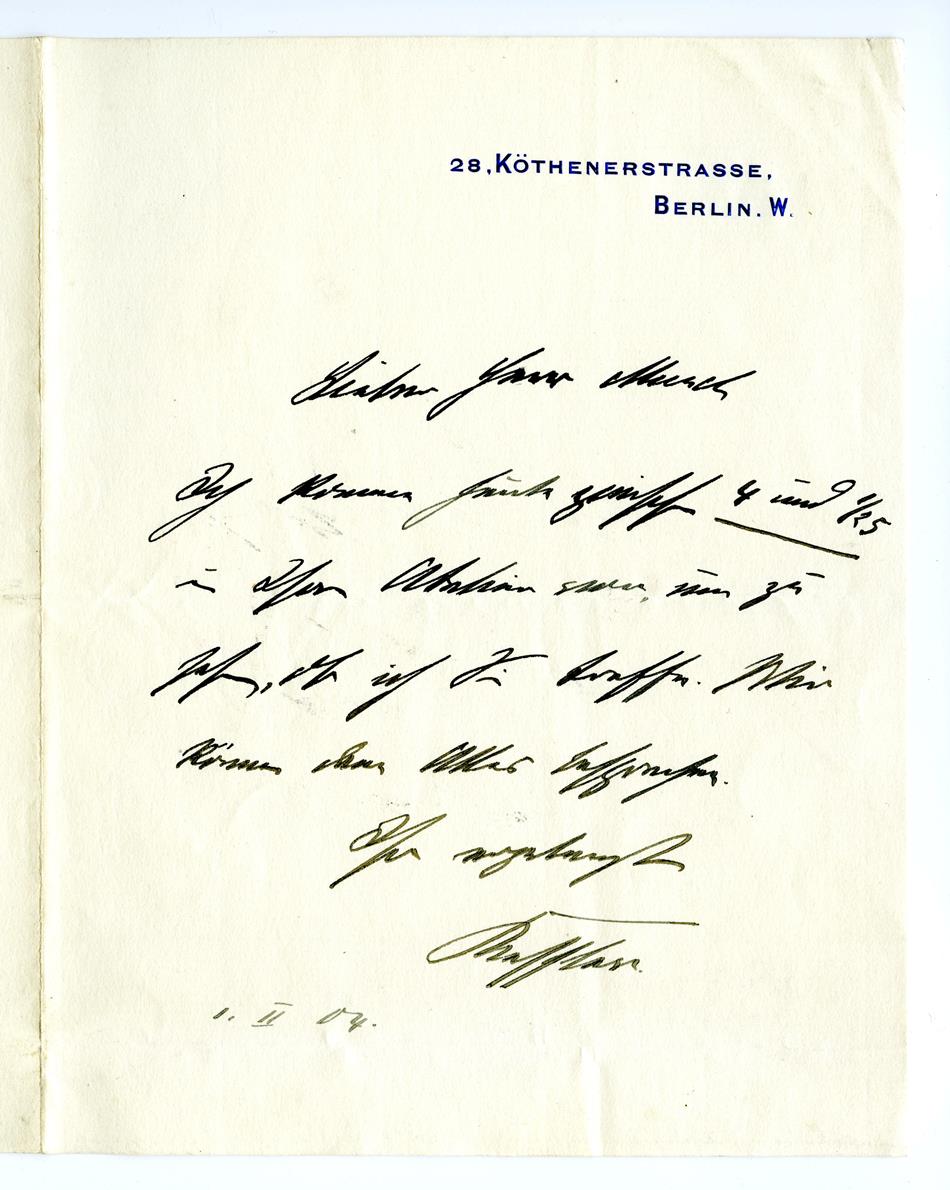 28, KÖTHENERSTRASSE,
BERLIN. W.
Lieber Herr Munch
Ich komme heute zwischen 4 und 1/2 5
in Ihr Atelier um zu
sehen, ob ich Sie treffe. Wir
können dann Alles besprechen.
Ihr ergebenst
Kessler.
1. II 04.